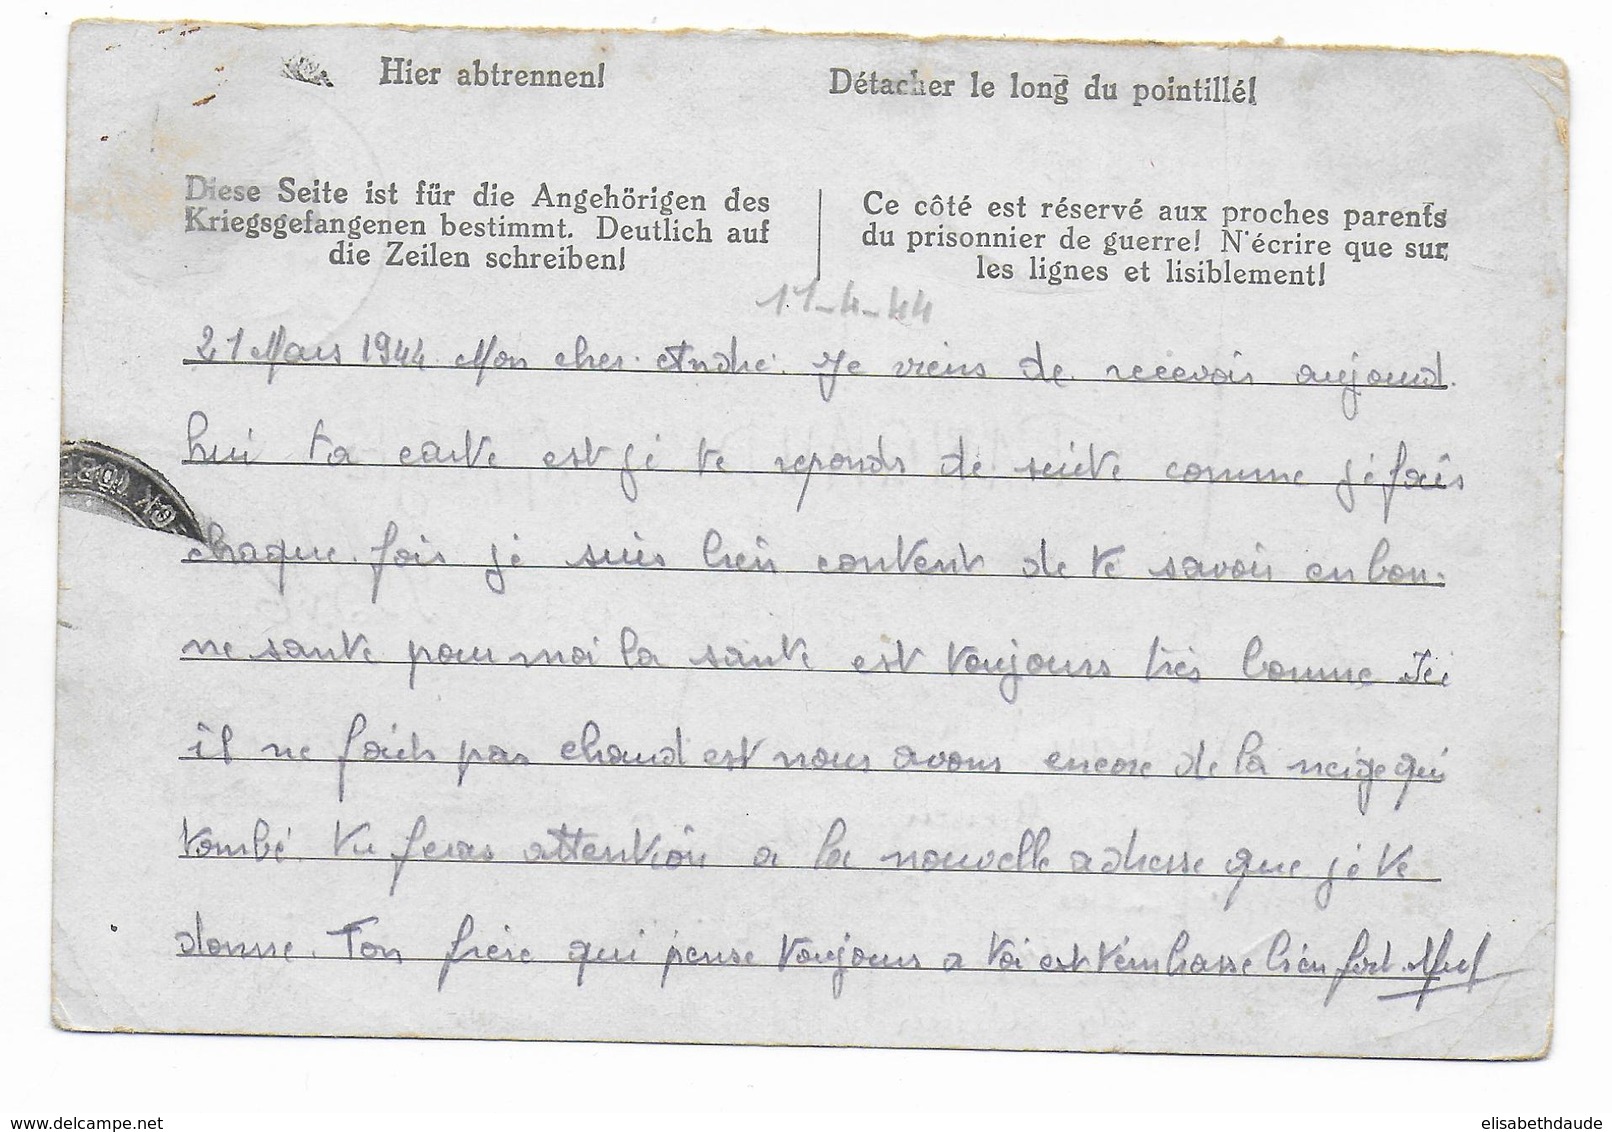 Hier abtrennen!
Détacher le long du pointillé!
Diese Seite ist für die Angehörigen des
Kriegsgefangenen bestimmt. Deutlich auf
die Zeilen schreiben!
Ce côté est réservé aux proches parents
du prisonnier de guerre! N'écrire que sur
les lignes et lisiblement!
11-4-44
21 Mars 1944 Mon cher André. Je viens de recevoir aujourd.
hui ta carte est je te reponds de suicte comme je fais
chaque fois je suis bien content de te savoir en bon-
ne sante pour moi la sante est toujours très bonne Ici
il ne faich pas chaud est nous avons encore de la neige qui
tombé. tu feras attention a la nouvelle adresse que je te
donne. Ton frère qui pense toujours a toi est t'embrasse bien fort.
delcampe.net
elisabethdaude